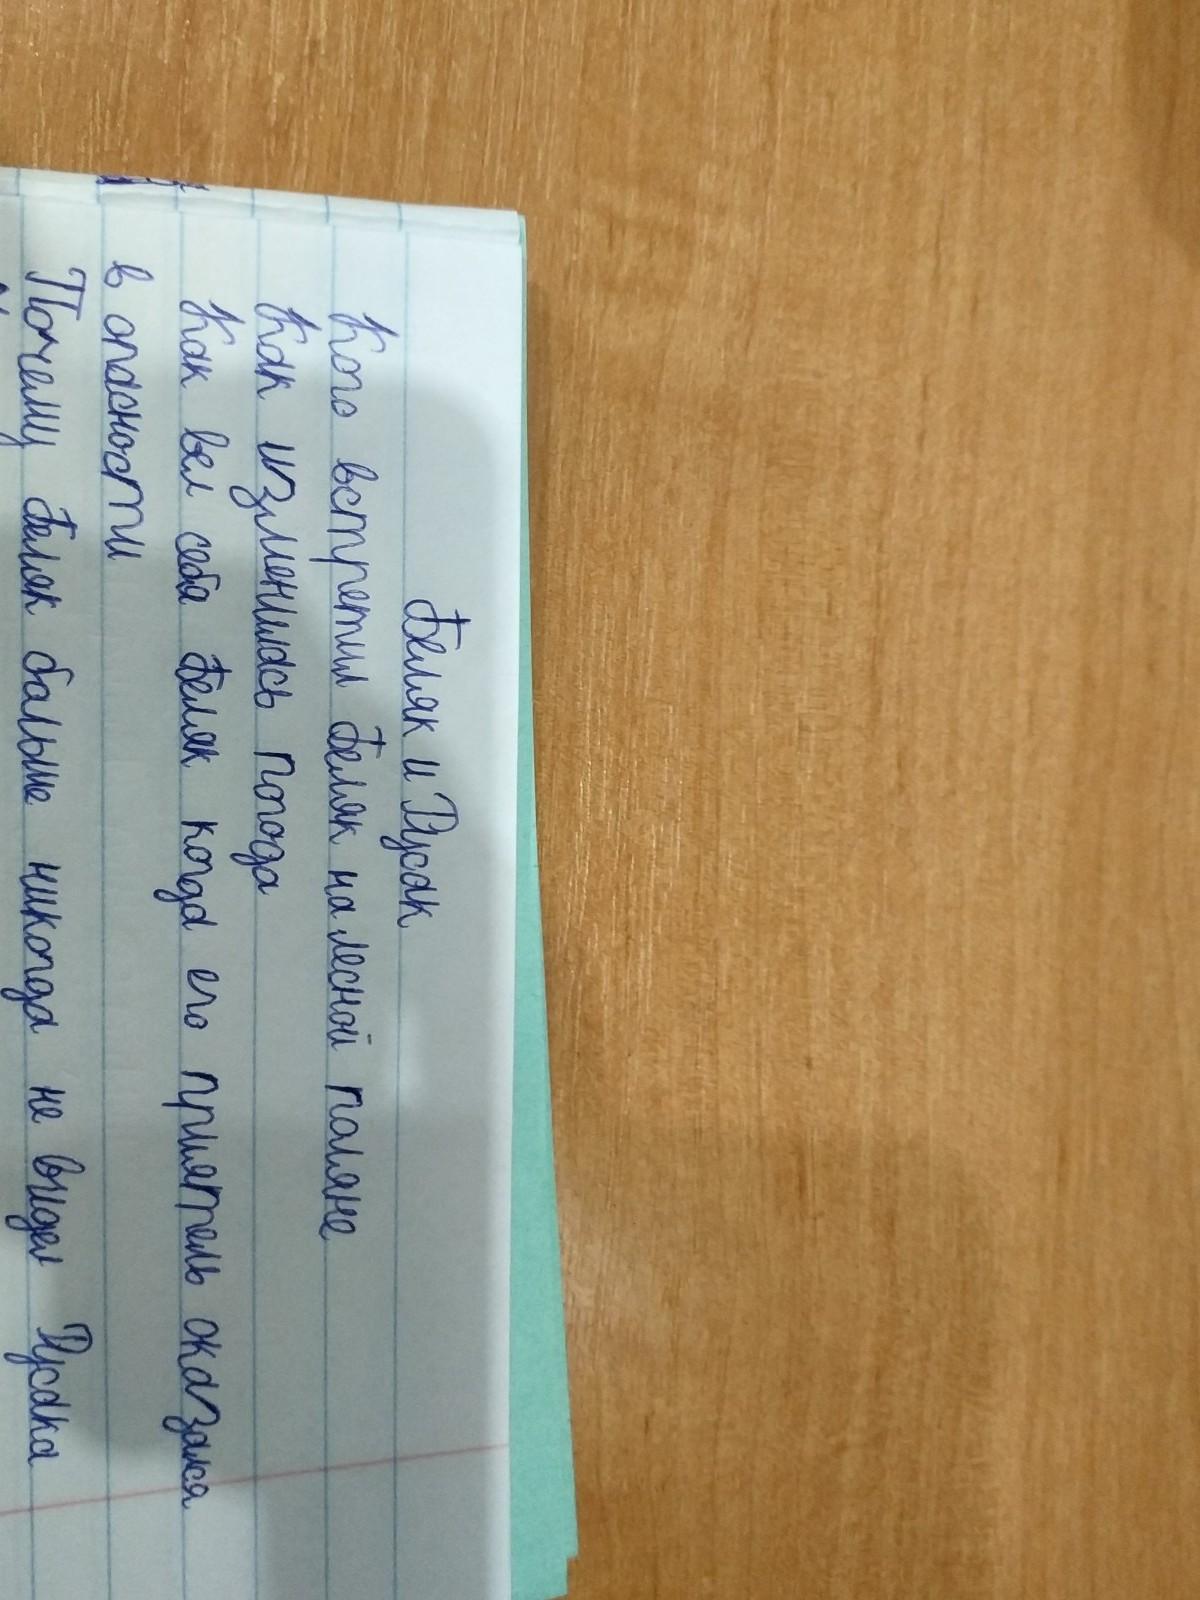 Беляк и Русак
Кого встретил Беляк на лесной поляне
Как изменилась погода
Как вел себя Беляк когда его приятель оказался
в опасности
Почему Беляк больше никогда не видел Русака